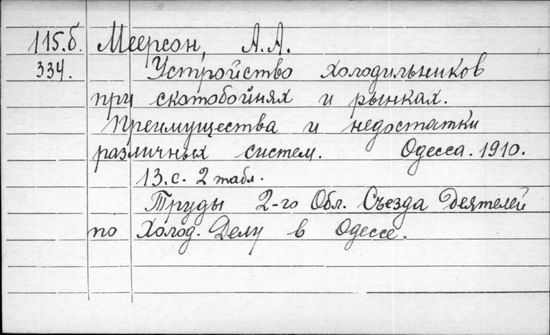 115.б. Меерсон, А.А.
334. Устройство холодильников
при скотобойнях и рынках.
Преимущества и недостатки
различных систем. Одесса. 1910.
13.с. 2 табл.
Труды 2-го Обл. Съезда Деятелей
по Холод. Делу в Одессе.